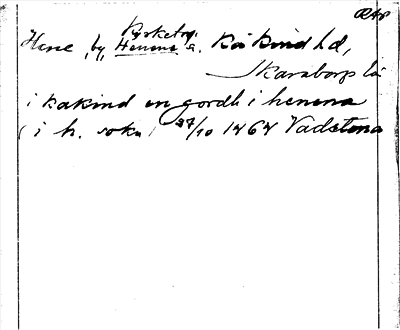 RAp
Hene, by, Henene s. Kåkinds hd,
Skaraborgs län
i kakind en gordh i henena
( i h. sokn ) 27/10 1464 Vadstena